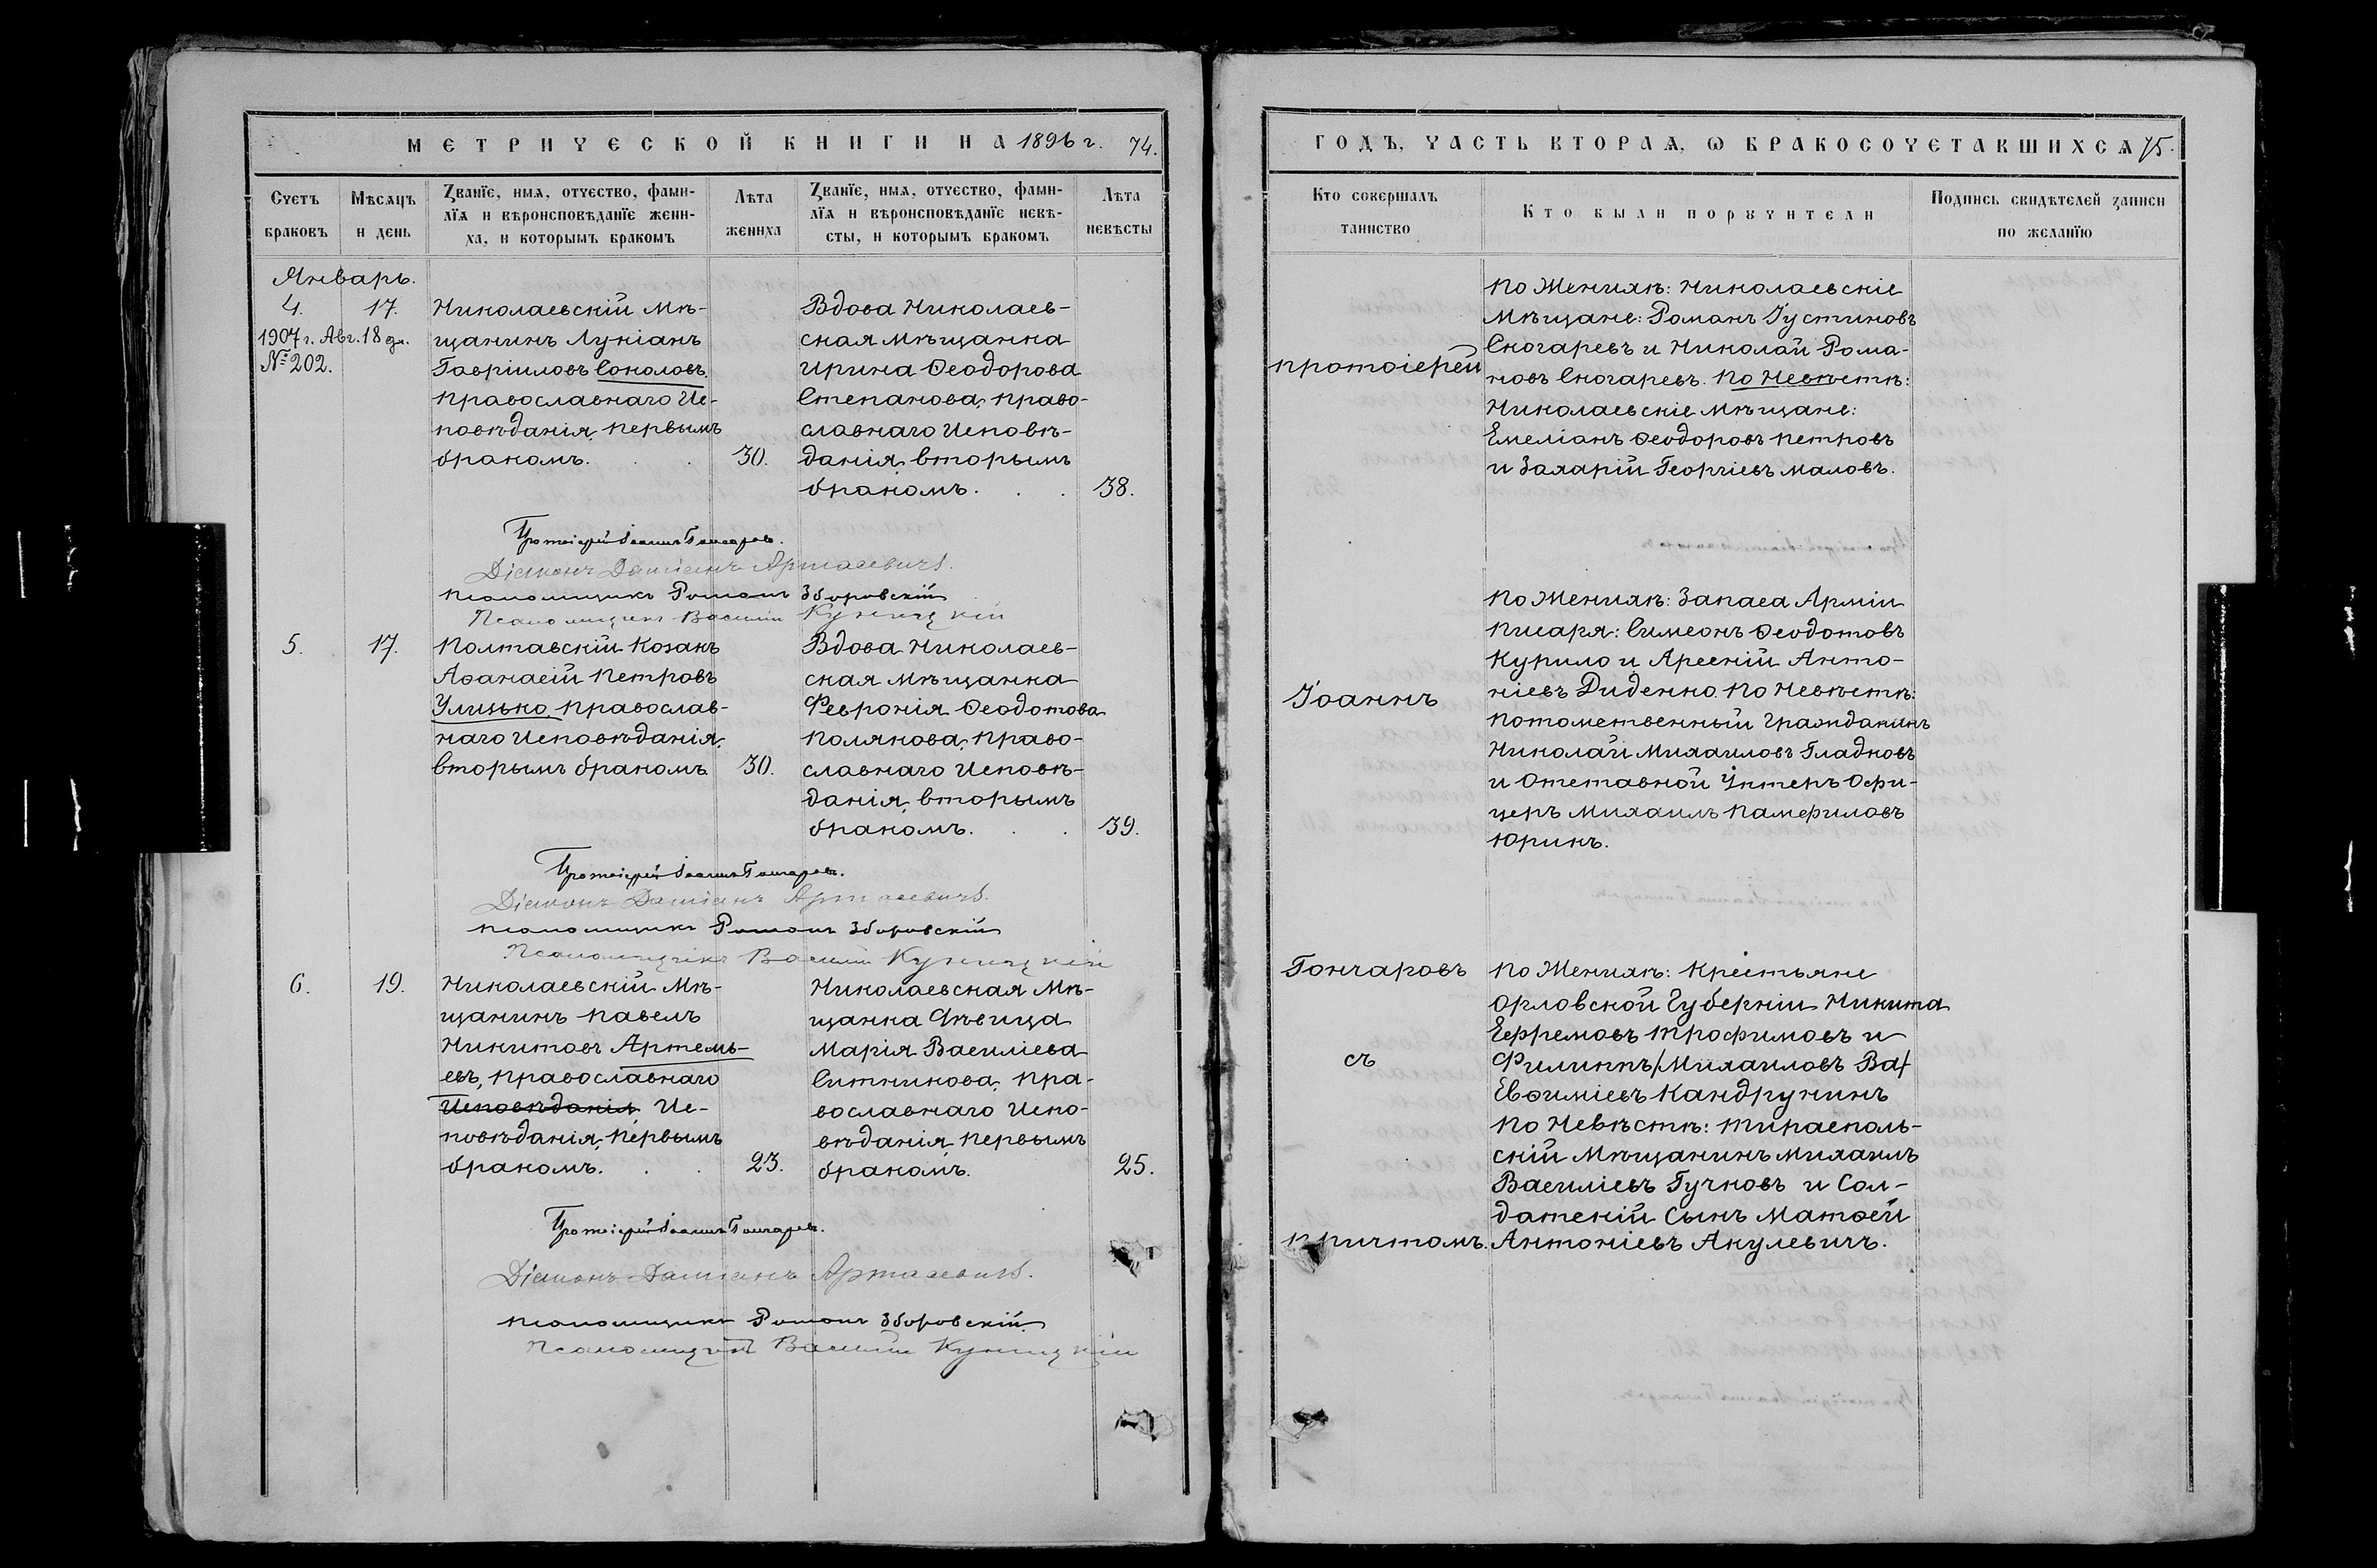 МЕТРИЧЕСКОЙ КНИГИ НА 1896 г. 74.
Счетъ браковъ
Мѣсяцъ и день
Званїе, имя, отчество, фами-
лїя и вѣроисповѣданїе жени-
ха, и которымъ бракомъ
Лѣта
жениха
Званїе, имя, отчество, фами-
лїя и вѣроисповѣданїе невѣ-
сты, и которымъ бракомъ
Лѣта
невѣсты
Январь.
4. 17.
1907 г. Авг. 18 дн.
№ 202.
Николаевскій Мѣ-
щанинъ Лукіанъ
Гавріиловъ Соколовъ,
православнаго Ис-
повѣданія, первымъ
бракомъ. . . 30.
Вдова Николаев-
ская мѣщанка
Ирина Ѳеодорова
Степанова, право-
славнаго Исповѣ-
данія, вторымъ
бракомъ. . . 38.
Протоіерей Іоаннъ Гончаровъ.
Діаконъ Даміанъ Артасевичъ.
Псаломщикъ Романъ Зборовскій
Псаломщикъ Василій Куницкій
5. 17.
Полтавскій Козакъ
Аѳанасій Петровъ
Улицько, православ-
наго Исповѣданія,
вторымъ бракомъ 30.
Вдова Николаев-
ская мѣщанка
Февронія Ѳеодотова
Полякова, право-
славнаго Исповѣ-
данія, вторымъ
бракомъ. . . 39.
Протоіерей Іоаннъ Гончаровъ.
Діаконъ Даміанъ Артасевичъ.
Псаломщикъ Романъ Зборовскій
Псаломщикъ Василій Куницкій
6. 19.
Николаевскій Мѣ-
щанинъ Павелъ
Никитовъ Артемь-
евъ, православнаго
Исповѣданія Ис-
повѣданія, первымъ
бракомъ. . . 23.
Николаевская Мѣ-
щанка Дѣвица
Марія Василіева
Ситникова, пра-
вославнаго Испо-
вѣданія, первымъ
бракомъ. 25.
Протоіерей Іоаннъ Гончаровъ.
Діаконъ Даміанъ Артасевичъ.
Псаломщикъ Романъ Зборовскій
Псаломщикъ Василій Куницкій
ГОДЪ, ЧАСТЬ ВТОРАЯ, Ѡ БРАКОСОЧЕТАВШИХСЯ 75.
Кто совершалъ
таинство
Кто были порꙋчители
Подпись свидѣтелей записи
по желанїю
протоіерей
Іоаннъ
Гончаровъ
съ
причтомъ.
По Женихѣ: Николаевскіе
Мѣщане: Романъ Іустиновъ
Сногаревъ и Николай Рома-
новъ Сногаревъ. По Невѣстѣ:
Николаевскіе мѣщане:
Емеліанъ Ѳеодоровъ Петровъ
и Захарій Георгіевъ Маловъ.
По Женихѣ: Запаса Арміи
Писаря: Симеонъ Ѳеодотовъ
Курило и Арсеній Анто-
ніевъ Диденко. По Невѣстѣ:
Потомственный Гражданинъ
Николай Михаиловъ Гладковъ
и Отставной Унтеръ Офи-
церъ Михаилъ Памфиловъ
Юринъ.
По Женихѣ: Крестьяне
Орловской Губерніи Никита
Ефремовъ Трофимовъ и
Филиппъ /Михаиловъ Ва/
Евѳиміевъ Кандрунинъ
По Невѣстѣ: Тирасполь-
скій Мѣщанинъ Михаилъ
Василіевъ Гучковъ и Сол-
датскій Сынъ Матѳей
Антоніевъ Акулевичъ.